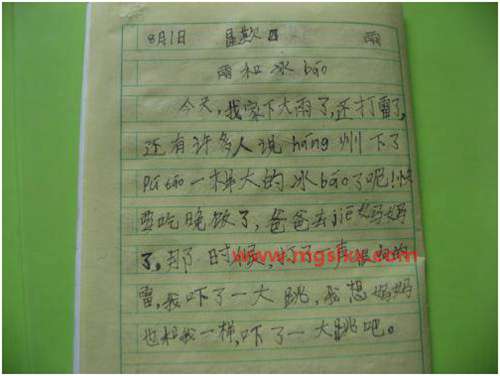 8月1日 星期日 雨
雨和冰bāo
今天,我家下大雨了,还打雷了,
还有许多人说háng州下了
Pú táo一样大的冰bāo了呢!快
要吃晚饭了,爸爸去jiē妈妈
了,那时候,打了一声很大的
www.mgsjkw.com
雷,我吓了一大跳,我想妈妈
也和我一样,吓了一大跳吧。